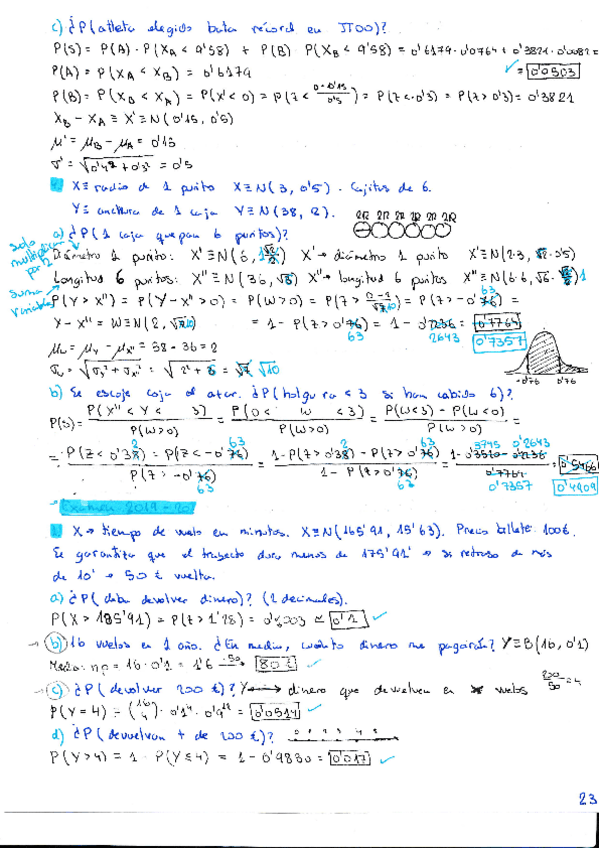 c) ¿P(atleta elegido bata récord en JJOO)?
P(S) = P(A) · P(X_A < 9'58) + P(B) · P(X_B < 9'58) = 0'6179 · 0'0764 + 0'3821 · 0'0082 =
P(A) = P(X_A < X_B) = 0'6179
= 0'0503
P(B) = P(X_B < X_A) = P(X' < 0) = P(Z < (0 - 0'15)/0'5) = P(Z < -0'3) = P(Z > 0'3) = 0'3821
X_B - X_A ≡ X' ≡ N(0'15, 0'5)
μ' = μ_B - μ_A = 0'15
σ' = √(0'4² + 0'3²) = 0'5
X ≡ radio de 1 purito X ≡ N(3, 0'5). Cajitas de 6.
Y ≡ anchura de 1 caja Y ≡ N(38, 2).
2R 2R 2R 2R 2R 2R
a) ¿P(1 caja quepan 6 puritos)?
solo multiplicar por 2
Diámetro 1 purito: X' ≡ N(6, 1 X' → diámetro 1 purito X' ≡ N(2·3, 2·0'5)
Longitud 6 puritos: X'' ≡ N(36, √6) X'' → longitud 6 puritos X'' ≡ N(6·6, √6·1
suma variables
P(Y > X'') = P(Y - X'' > 0) = P(W > 0) = P(Z > = P(Z > -0'63) =
Y - X'' = W ≡ N(2, √10) = 1 - P(Z > 0'63) = 1 - 0'2643 = 0'7357
μ_W = μ_Y - μ_X'' = 38 - 36 = 2
σ_W = √(σ_Y² + σ_X''²) = √(2² + 6) = √10
-0'76 0'76
b) Se escoje caja al azar. ¿P(holgura < 3 si han cabido 6)?
P(S) = P(X'' < Y < 3) / P(W > 0) = P(0 < W < 3) / P(W > 0) = P(W < 3) - P(W < 0) / P(W > 0) =
= P(Z < 0'32) - P(Z < -0'63) / P(Z > -0'63) = 1 - P(Z > 0'32) - P(Z > 0'63) / 1 - P(Z > 0'63) = 1 - 0'3745 - 0'2643 / 0'7357 = 0'4909
Examen 2019-20
X → tiempo de vuelo en minutos. X ≡ N(165'91, 15'63). Precio billete 100€.
Se garantiza que el trayecto dura menos de 175'91' → si retraso de más
de 10' → 50 € vuelta.
a) ¿P(deba devolver dinero)? (2 decimales).
P(X > 185'91) = P(Z > 1'28) = 0'1003 ≃ 0'1
b) 16 vuelos en 1 año. ¿En media, cuánto dinero me pagarán? Y ≡ B(16, 0'1)
Media: np = 16 · 0'1 = 1'6 ·50→ 80 €
c) ¿P(devolver 200 €)? Y → dinero que devuelven en vuelos 200/50 = 4
P(Y = 4) = (16 4) · 0'1⁴ · 0'9¹² = 0'0514
d) ¿P(devuelvan + de 200 €)? 0 1 2 3 4 5
P(Y > 4) = 1 - P(Y ≤ 4) = 1 - 0'9830 = 0'017
23